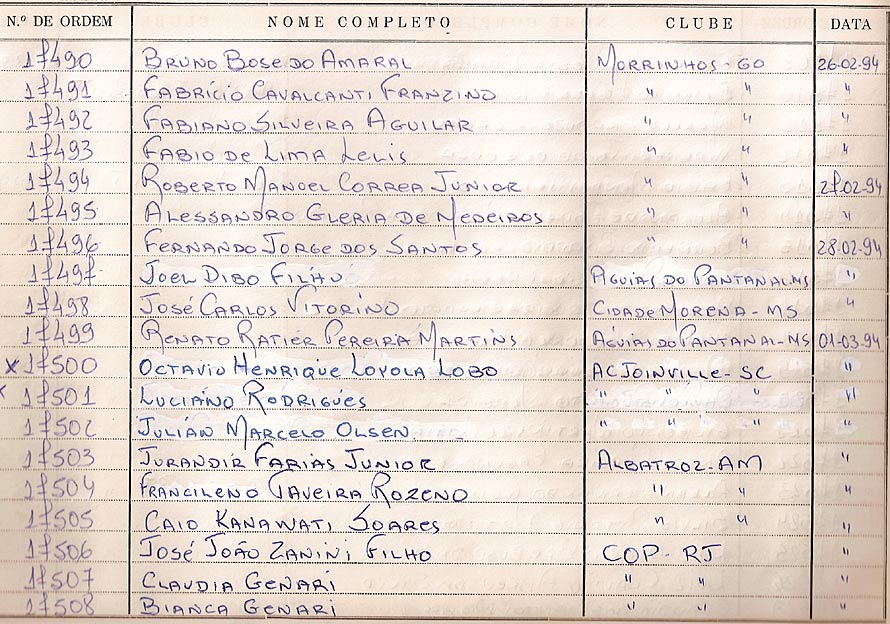 N.º DE ORDEM NOME COMPLETO CLUBE DATA
17490 BRUNO BOSE DO AMARAL MORRINHOS - GO 26-02-94
17491 FABRÍCIO CAVALCANTI FRANZINO " " "
17492 FABIANO SILVEIRA AGUILAR " " "
17493 FABIO DE LIMA LELIS " " "
17494 ROBERTO MANOEL CORREA JUNIOR " " 27-02-94
17495 ALESSANDRO GLERIA DE MEDEIROS " " "
17496 FERNANDO JORGE DOS SANTOS " " 28-02-94
17497 JOEL DIBO FILHO ÁGUIAS DO PANTANAL-MS "
17498 JOSÉ CARLOS VITORINO CIDADE MORENA - MS "
17499 RENATO RATIER PEREIRA MARTINS ÁGUIAS DO PANTANAL-MS 01-03-94
x 17500 OCTAVIO HENRIQUE LOYOLA LOBO AC JOINVILLE - SC "
x 17501 LUCIANO RODRIGUES " " " "
17502 JULIAN MARCELO OLSEN " " " "
17503 JURANDIR FARIAS JUNIOR ALBATROZ - AM "
17504 FRANCILENO TAVEIRA ROZENO " " "
17505 CAIO KANAWATI SOARES " " "
17506 JOSÉ JOÃO ZANINI FILHO COP - RJ "
17507 CLAUDIA GENARI " " "
17508 BIANCA GENARI " " "